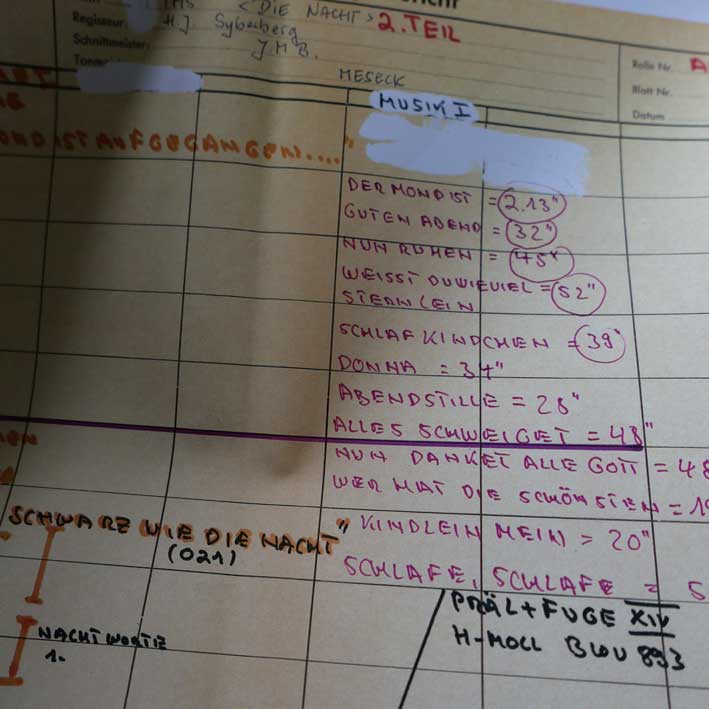 < DIE NACHT > 2. TEIL
Regisseur: H.J. Syberberg
Schnittmeister: J.M.B.
MESECK
Rolle Nr. A
Blatt Nr.
Datum
MUSIK I
OND IST AUFGEGANGEN...."
DER MOND IST = 2.13"
GUTEN ABEND = 32"
NUN RUHEN = 45"
WEISST DU WIEVIEL = 52"
STERNLEIN
SCHLAF KINDCHEN = 39"
DONNA = 34"
ABENDSTILLE = 28"
ALLES SCHWEIGET = 48"
NUN DANKET ALLE GOTT = 48
WER HAT DIE SCHÖNSTEN = 19
KINDLEIN MEIN = 20"
SCHLAFE, SCHLAFE = 5
SCHWARZ WIE DIE NACHT"
(021)
PRÄL + FUGE XIV
H-MOLL BWV 893
NACHTWORTE
1.